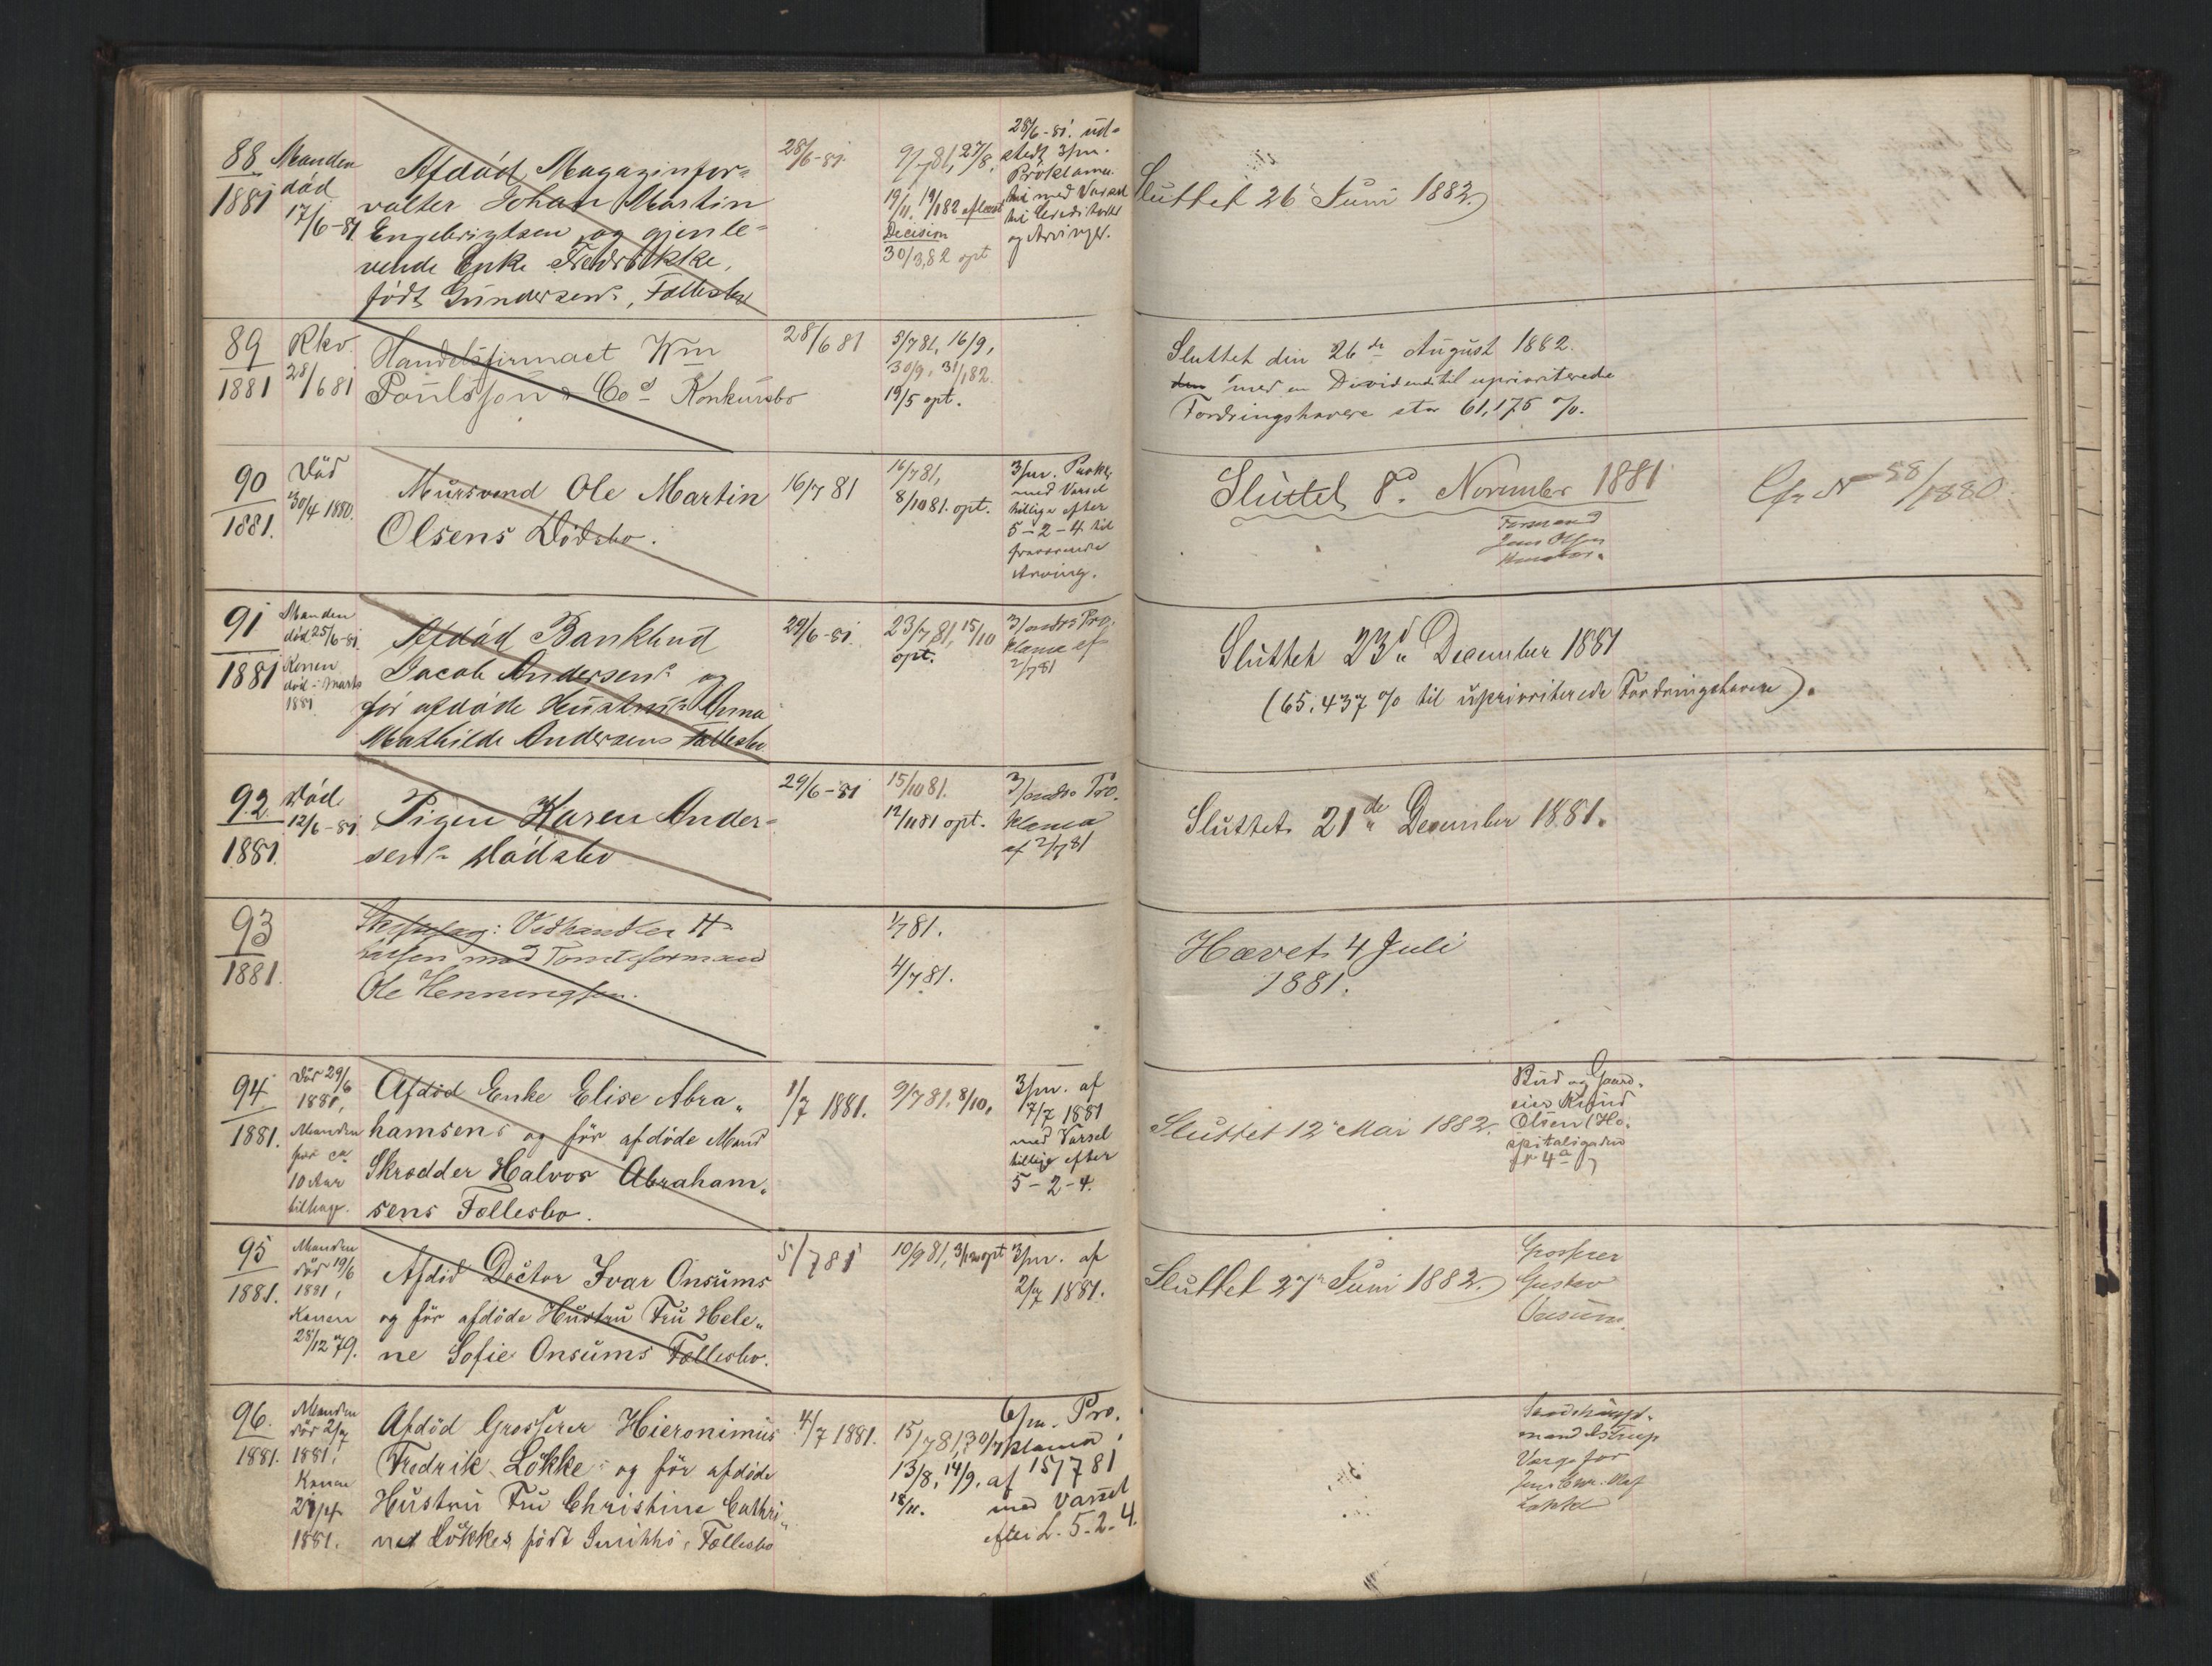 88
1881
Manden
død
17/6-81
Afdød Magazinfor-
valter Johan Martin
Engebrigtsen og gjenle-
vende Enke Fredrikke,
født Gundersens, Fællesbo
28/6-81.
9/781, 27/8,
19/11. 19/182 aflæst
Decision
30/3,82 opt
28/6-81. ud-
stedt 3/m.
Proklama
med Varsel
til Creditorer
og Arvinger.
Sluttet 26 Juni 1882.
89
1881
Rkv.
28/681
Handelsfirmaet Wm
Poulsson & Co's Konkursbo
28/681
5/781, 16/9,
30/9, 31/182.
19/5 opt.
Sluttet den 26de August 1882.
med en Dividende til uprioriterede
Fordringshavere stor 61,175 %.
90
1881.
Død
30/4 1880.
Mursvend Ole Martin
Olsens Dødsbo.
16/7 81
16/781,
8/1081. opt.
3/m. Prokl.
med Varsel
tillige efter
5-2-4 til
fraværende
Arving.
Sluttet 8d November 1881
Formand
Jens Olsen
Cfr N 58/1880.
91
1881
Manden
død 25/6-81.
Konen
død - Marts
1881
Afdød Bankbud
Jacob Andersens og
før afdøde Hustru Anna
Mathilde Andersens Fællesbo
29/6-81.
23/781, 15/10
opt.
3/mdrs Pro.
klama af
2/781
Sluttet 23d December 1881
(65.437 % til uprioriterede Fordringshavere).
92
1881.
Død
12/6-81
Pigen Karen Ander-
sens Dødsbo
29/6-81
15/1081.
12/1181 opt.
3/mdrs Pro.
klama
af 2/781
Sluttet 21de December 1881.
93
1881.
Vedhandler H
med Tomteformand
Ole Henningsen.
1/781.
4/781.
Hævet 4 Juli
1881.
94
1881.
Død 29/6
1881,
Manden
for ca
10 Aar
tilbage.
Afdød Enke Elise Abra-
hamsens og før afdøde Mand
Skrædder Halvor Abraham-
sens Fællesbo.
1/7 1881.
9/781, 8/10,
3/m. af
7/7 1881
med Varsel
tillige efter
5-2-4.
Sluttet 12 Mai 1882.
Bud og Gaard-
eier Knud
Olsen (Ho-
spitalsgaden
4a)
95
1881.
Manden
død 19/6
1881,
Konen
28/12 79.
Afdød Doctor Ivar Onsums
og før afdøde Hustru Fru Hele-
ne Sofie Onsums Fællesbo.
5/781
10/981, opt
3/m. af
2/7 1881.
Sluttet 27 Juni 1882.
Grosserer
Gustav
Onsum.
96.
1881.
Manden
død 2/7
1881,
Konen
1881.
Afdød Grosserer Hieronimus
Fredrik Løkke og før afdøde
Hustru Fru Christine Cathri-
ne Løkkes, født Smiths, Fællesbo
4/7 1881.
15/781, 30/7
13/8, 14/9,
18/11.
6/m. Pro.
klama
af 15/781
med Varsel
efter L. 5-2-4.
Værge for
Løkke